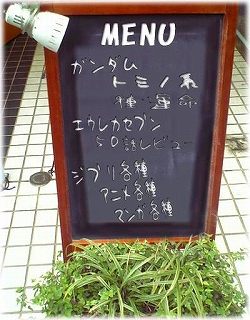 MENU
ガンダム
トミノ系
種・運命
エウレカセブン
50話レビュー
ジブリ各種
アニメ各種
マンガ各種